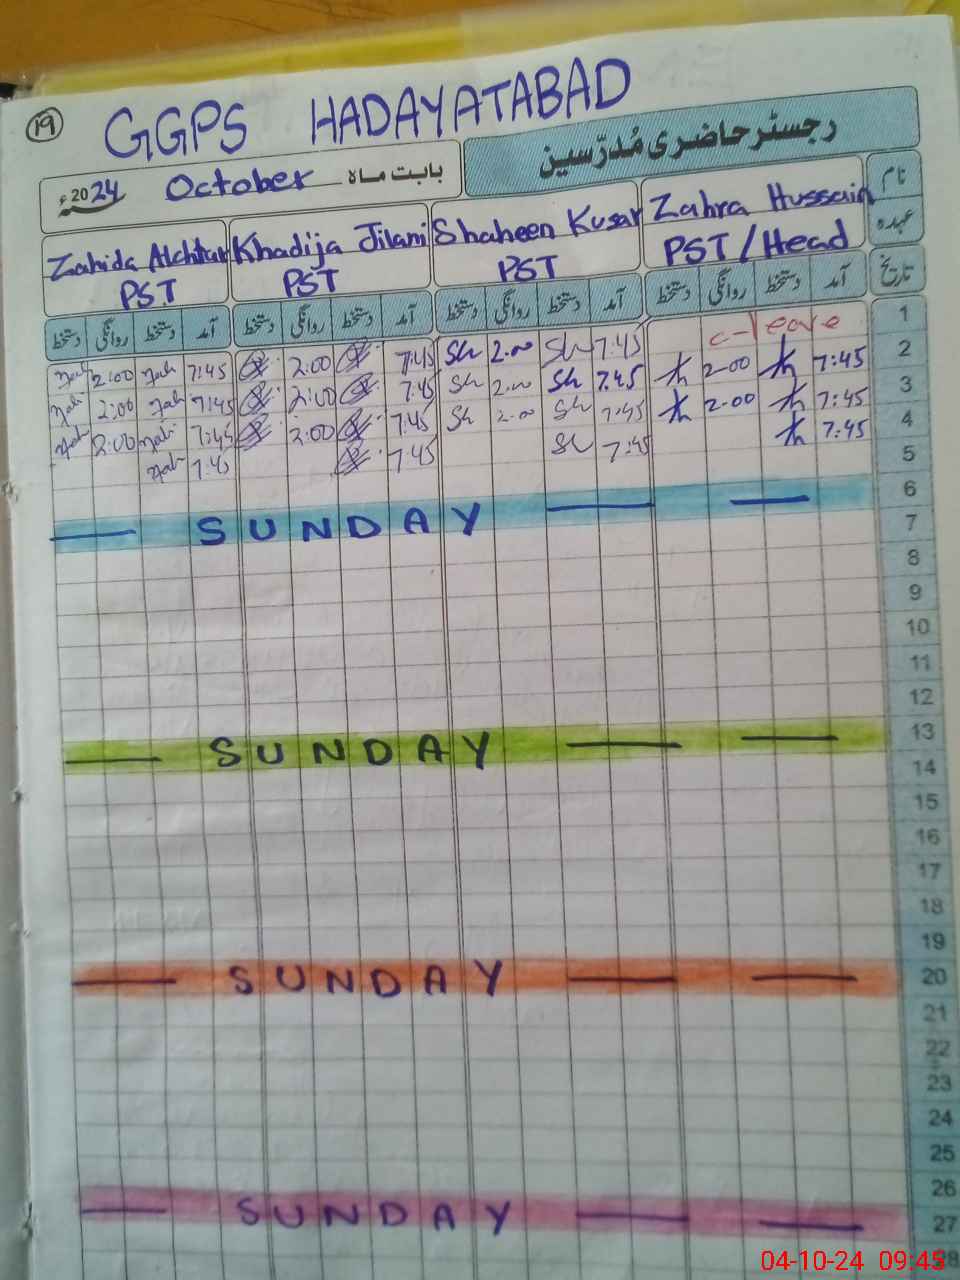 19
GGPS HADAYATABAD
رجسٹر حاضری مُدرّسین
بابت ماہ October 2024ء
نام
Zahida Akhtar Khadija Jilani Shaheen Kusar Zahra Hussain
عہدہ
PST PST PST PST / Head
تاریخ
آمد دستخط روانگی دستخط آمد دستخط روانگی دستخط آمد دستخط روانگی دستخط آمد دستخط روانگی دستخط
1 c-leave 7:45 Sh 2.00 Sh 7:45 2:00 7:45 2:00
2 7:45 2.00 7.45 Sh 2.00 Sh 7:45 2:00 7:45 2:00
3 7:45 2.00 7:45 Sh 2.00 Sh 7:45 2:00 7:45 2:00
4 7:45 7:45 Sh 7:45 7:45
5
6 SUNDAY
7
8
9
10
11
12
13 SUNDAY
14
15
16
17
18
19
20 SUNDAY
21
22
23
24
25
26
27 SUNDAY
28
04-10-24 09:45